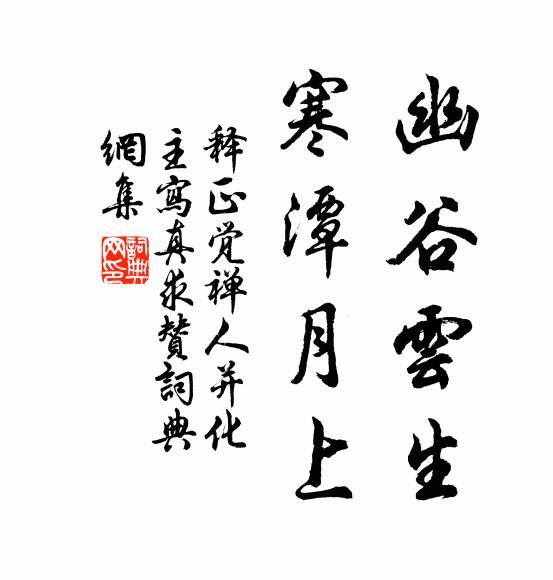 幽谷雲生
寒潭月上
释正觉禅人并化
主寫真求赞詞典
網集
詞典網印